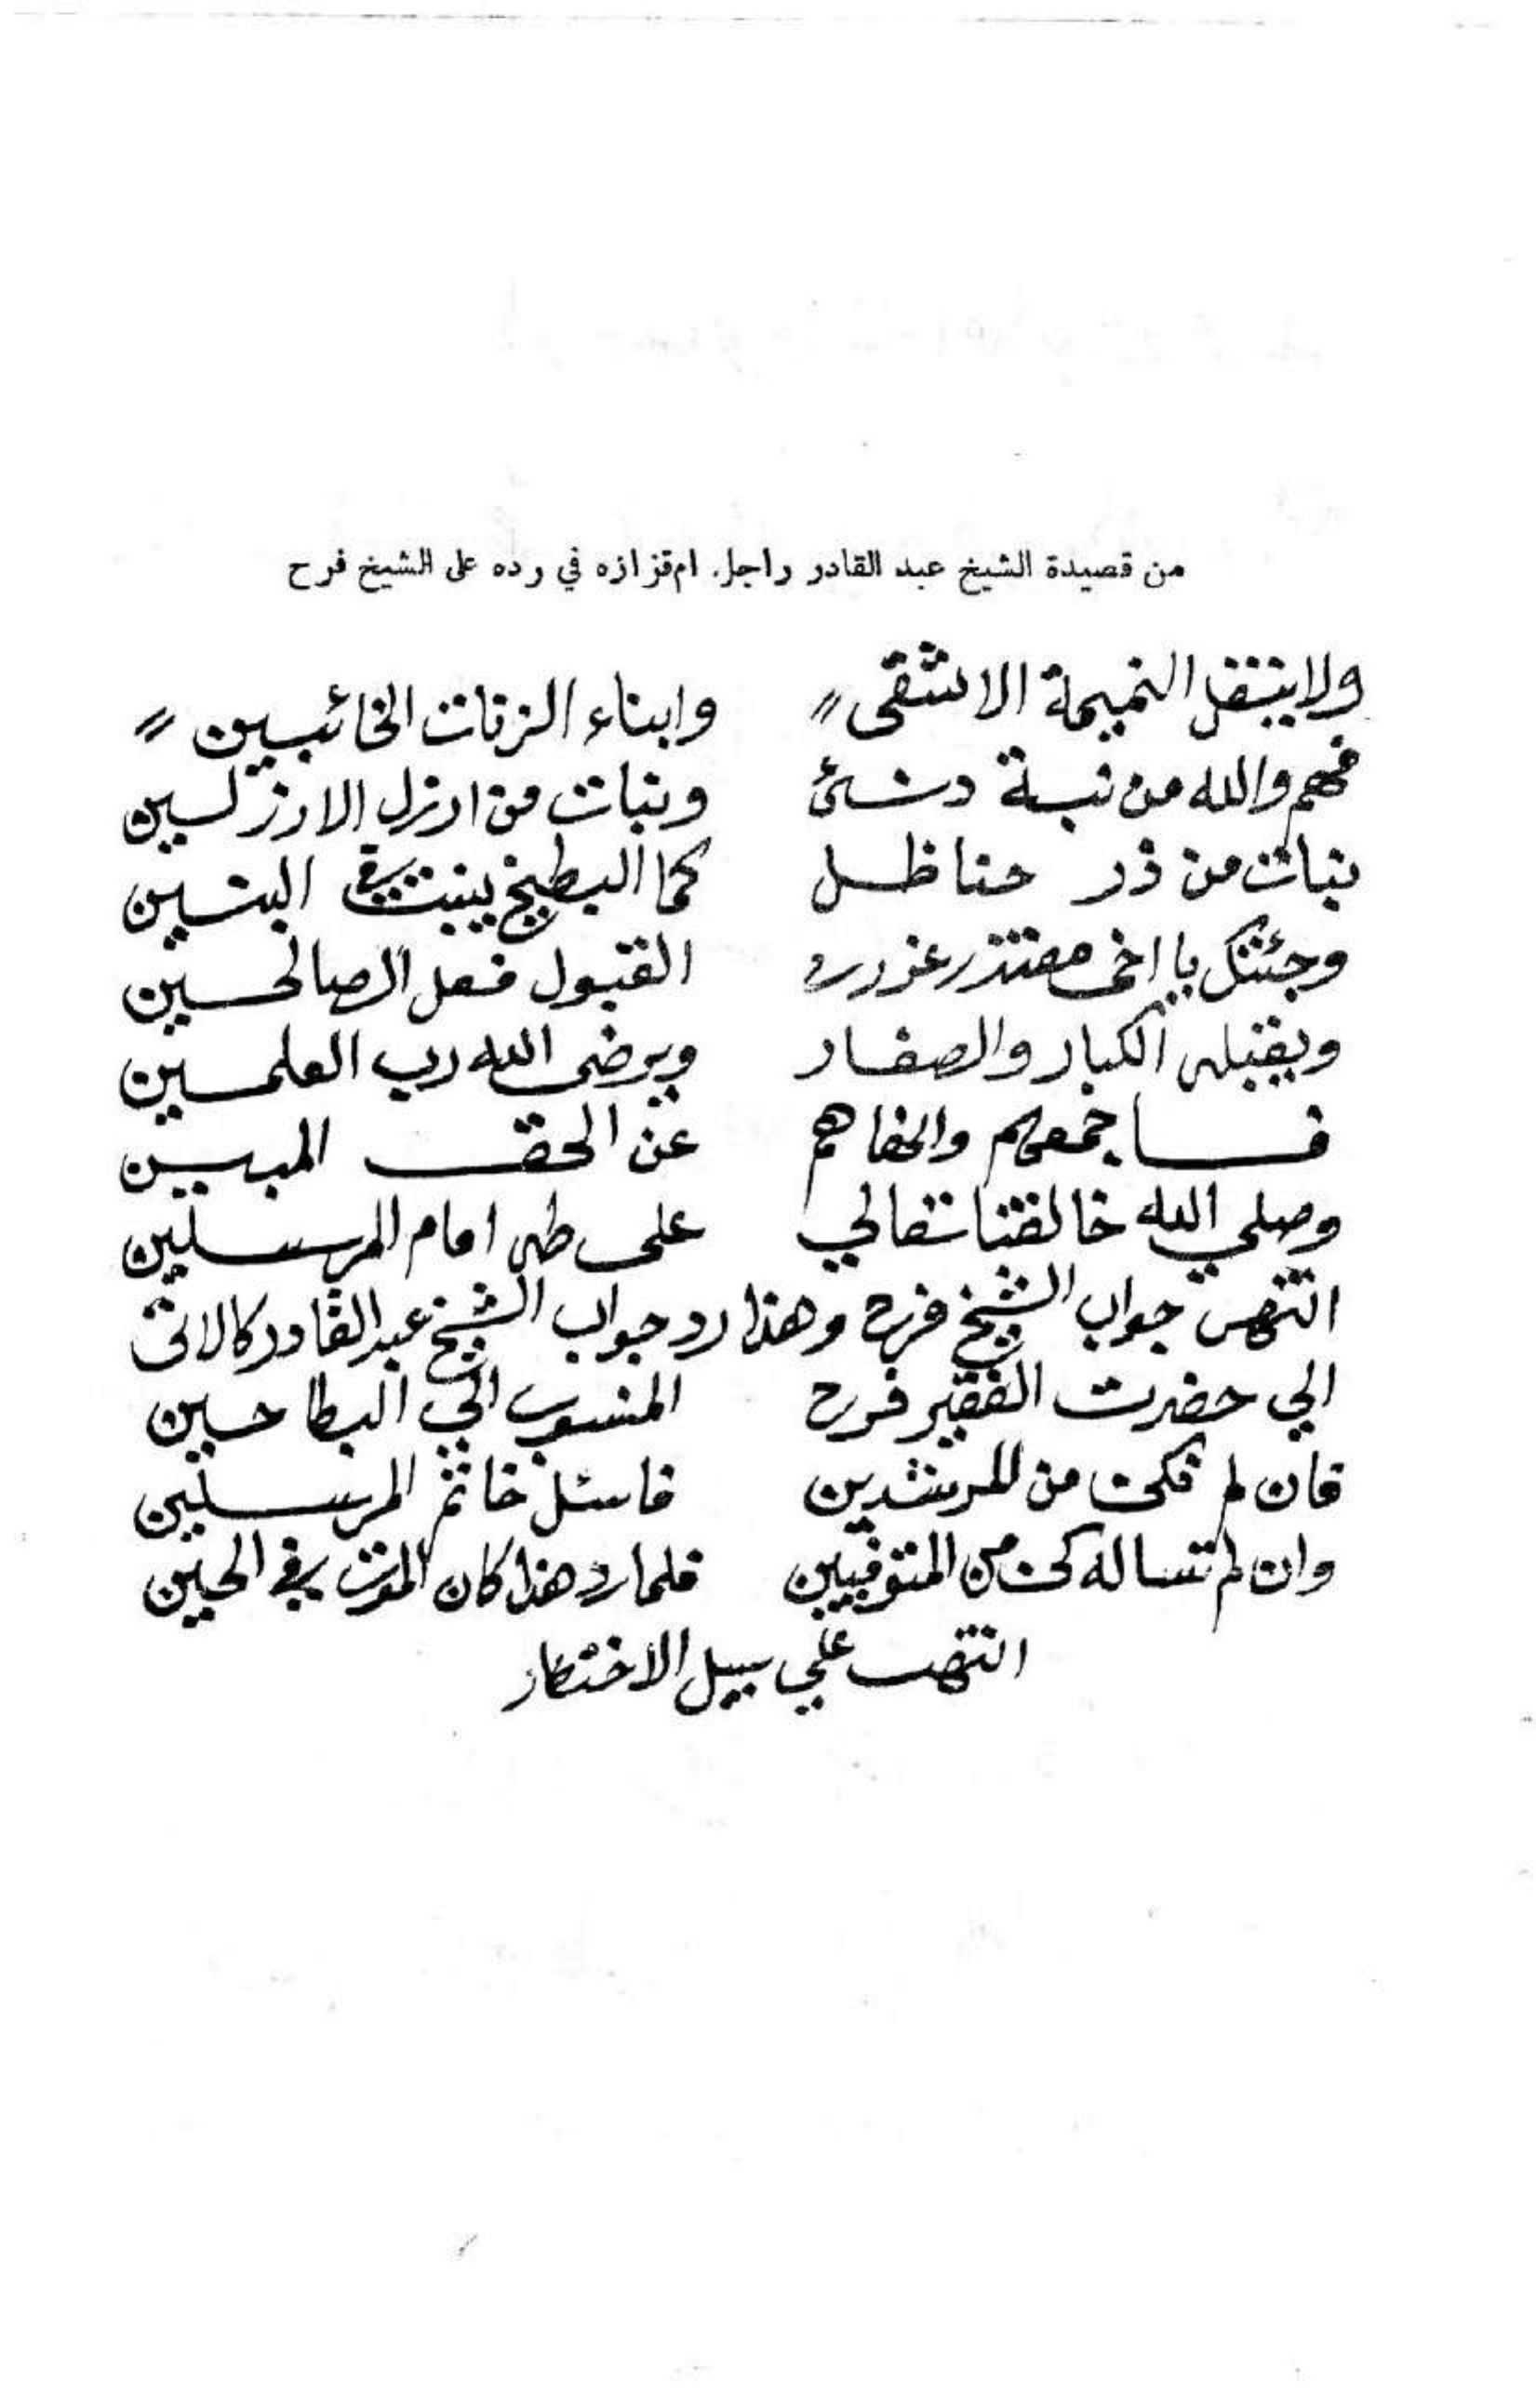 من قصيدة الشيخ عبد القادر راجل. ام قزازه في رده على الشيخ فرح
ولا ينقل النميمة الا شقى // وابناء الزنات الخائبين //
فهم والله من نبتة دشئ ونبات من ارزل الارزلين
نبات من ذر حناظل كما البطيخ ينبت في التين
وجئتك يا اخى معتذر القبول فعل الصالحين
ويقبله الكبار والصغار ويرضى الله رب العلمين
فساجمعهم والخفاهم عن الحق المبين
وصلي الله خالقنا تعالي على طه امام المرسلين
انتهى جواب الشيخ فرح وهذا رد جواب الشيخ عبد القادر كالاتى
الي حضرت الفقير فرح المنسوب الي البطاحين
فان لم تكن من المرشدين فاسئل خاتم المرسلين
وان لم تساله كنت من المتوفيين فلما رد هذا كان الموت في الحين
انتهت علي سبيل الاختصار